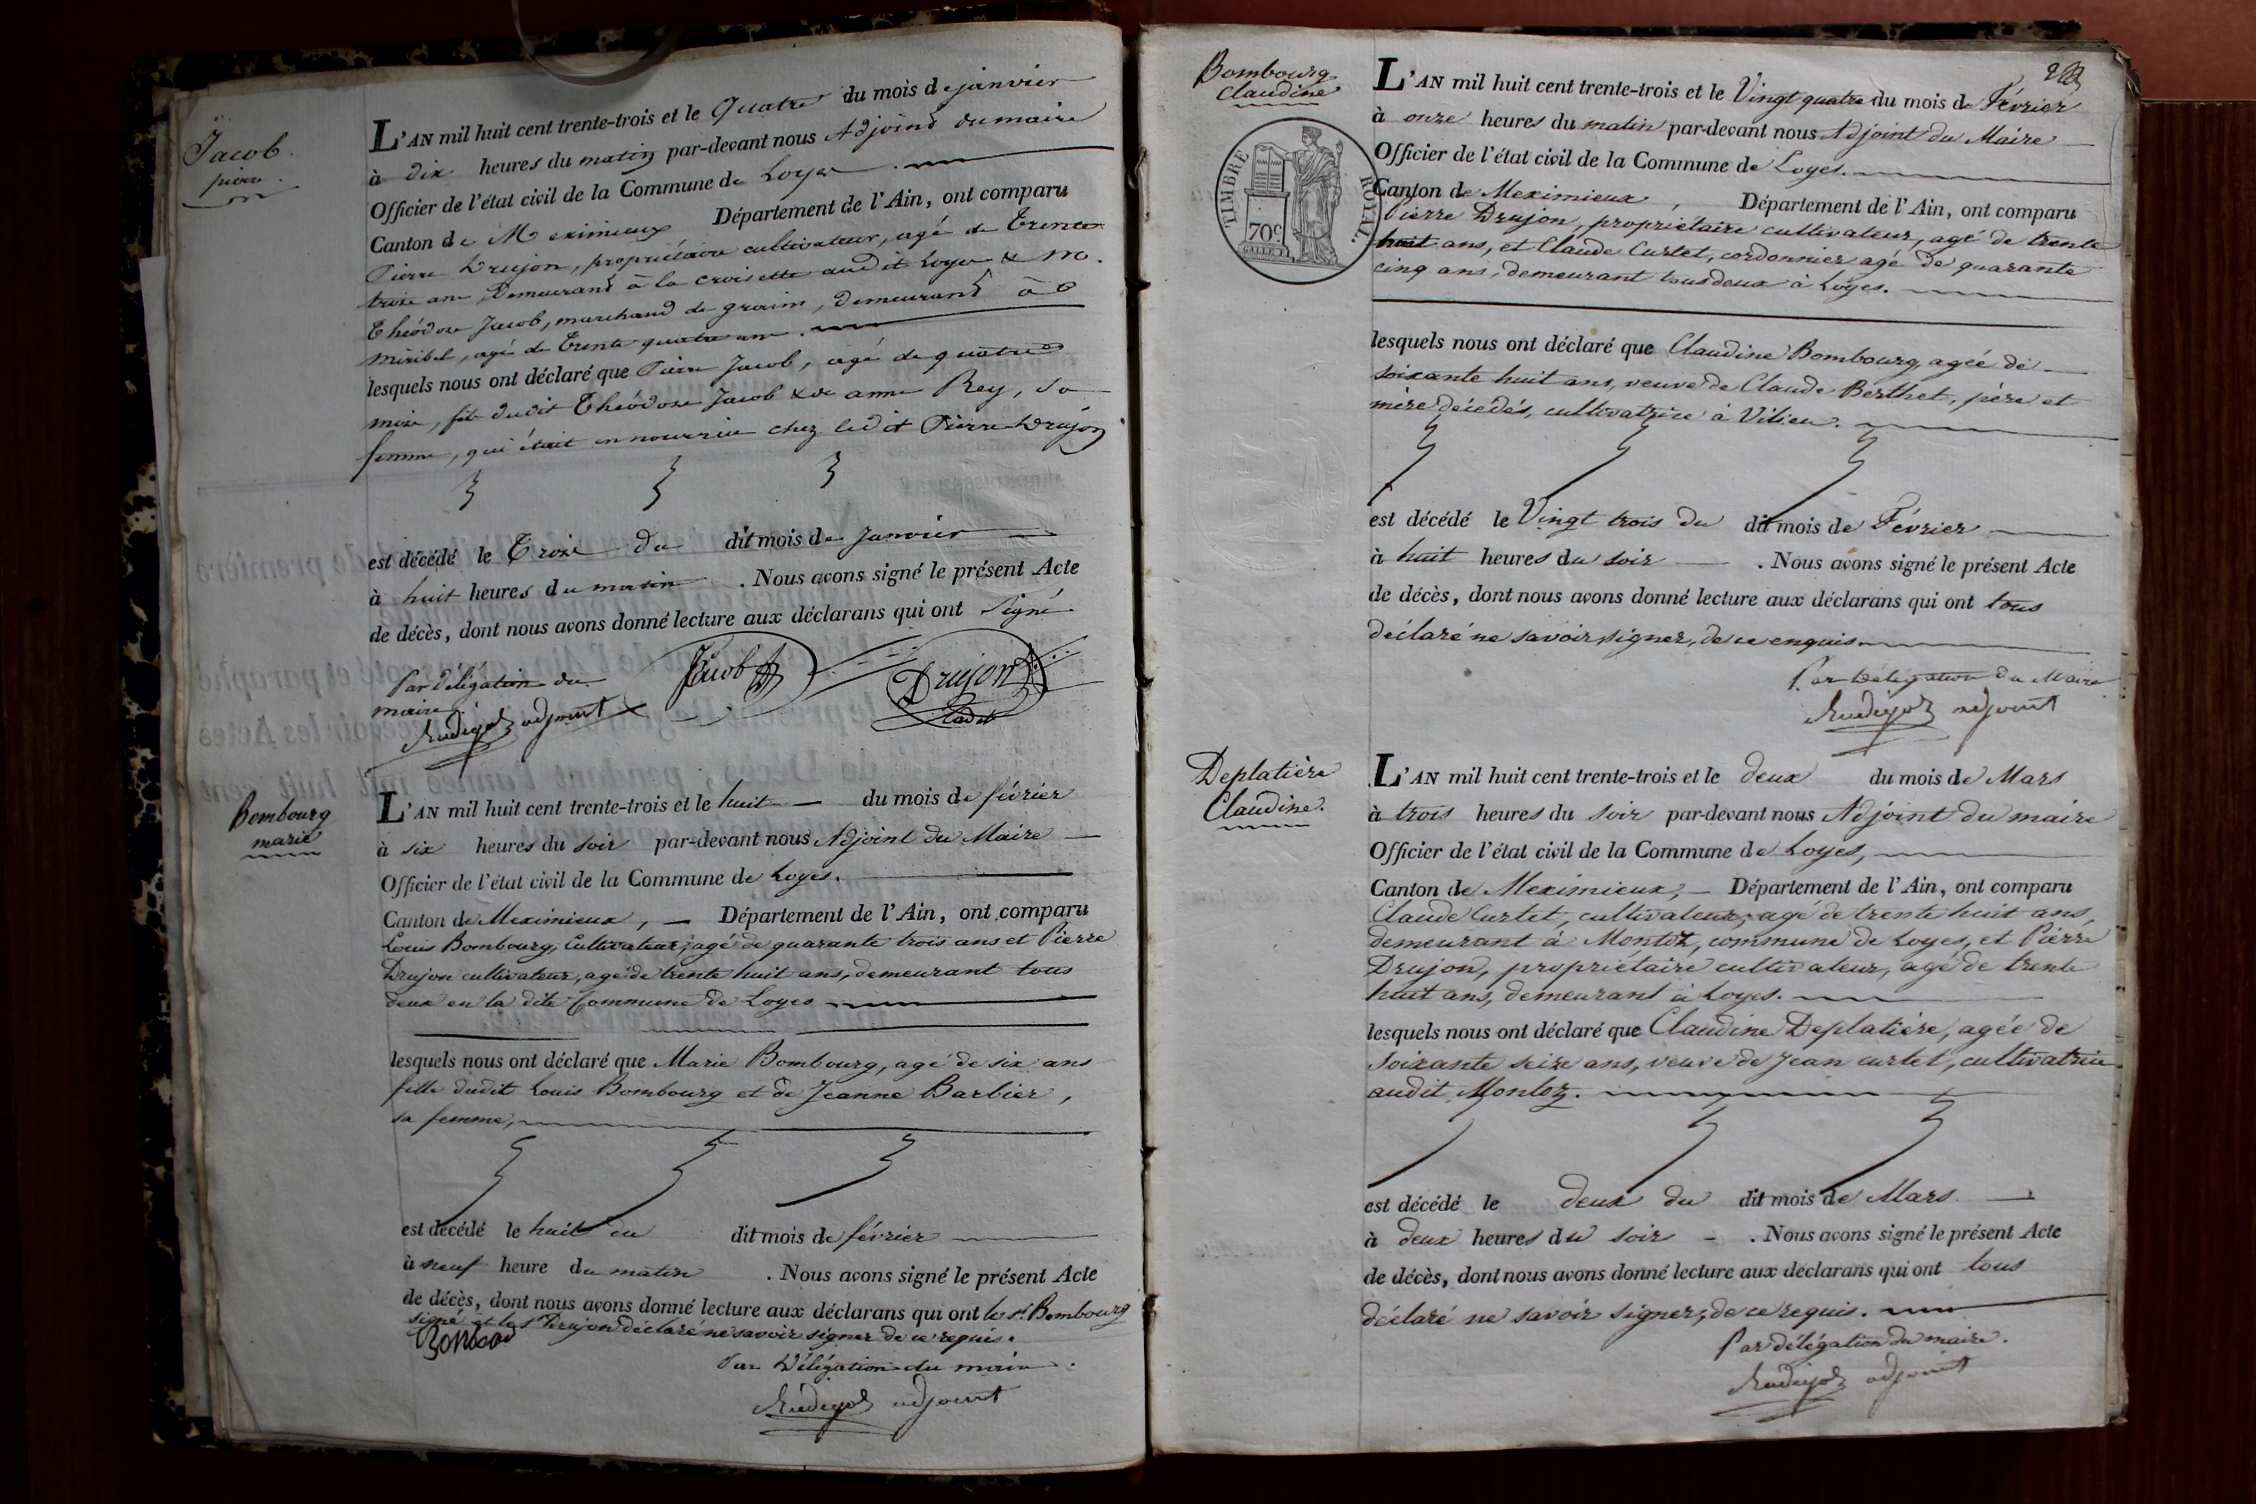 Jacob
pierre
L'AN mil huit cent trente-trois et le Quatre du mois de janvier
à dix heures du matin par-devant nous Adjoint du maire
Officier de l'état civil de la Commune de Loyes
Canton de Meximieux Département de l'Ain, ont comparu
Pierre Drujon, propriétaire cultivateur, agé de trente
trois ans, Demeurant à la croisette audit Loyes & Mr.
Théodore Jacob, marchand de grains, demeurant à
Miribel, agé de trente quatre ans.
lesquels nous ont déclaré que Pierre Jacob, agé de quatre
mois, fils dudit Théodore Jacob & de anne Rey, sa
femme, qui était en nourrice chez ledit Pierre Drujon
est décédé le Trois du dit mois de Janvier
à huit heures du matin . Nous avons signé le présent Acte
de décès, dont nous avons donné lecture aux déclarans qui ont Signé
Par délégation du
maire
Jacob
Drujon
Cadet
adjoint
Bombourg
marie
L'AN mil huit cent trente-trois et le huit du mois de février
à six heures du soir par-devant nous Adjoint du Maire
Officier de l'état civil de la Commune de Loyes.
Canton de Meximieux, Département de l'Ain, ont comparu
Louis Bombourg, Cultivateur, agé de quarante trois ans et Pierre
Drujon cultivateur, agé de trente huit ans, demeurant tous
deux en la dite Commune de Loyes
lesquels nous ont déclaré que Marie Bombourg, agé de six ans
fille dudit Louis Bombourg et de Jeanne Barbier,
sa femme,
est décédé le huit du dit mois de février
à neuf heure du matin . Nous avons signé le présent Acte
de décès, dont nous avons donné lecture aux déclarans qui ont le sr Bombourg
signé et le sr Drujon déclaré ne savoir signer de ce requis.
Par Délégation du maire.
adjoint
Bombourg
Claudine
TIMBRE ROYAL.
70c
L'AN mil huit cent trente-trois et le Vingt quatre du mois de Février
à onze heures du matin par-devant nous Adjoint du Maire
Officier de l'état civil de la Commune de Loyes.
Canton de Meximieux, Département de l'Ain, ont comparu
Pierre Drujon, propriétaire cultivateur, agé de trente
huit ans, et Claude Curtet, cordonnier agé de quarante
cinq ans, demeurant tous deux à Loyes.
lesquels nous ont déclaré que Claudine Bombourg, agée de
soixante huit ans, veuve de Claude Berthet, père et
mère décédés, cultivatrice à Vilieu.
est décédé le Vingt trois du dit mois de Février
à huit heures du soir . Nous avons signé le présent Acte
de décès, dont nous avons donné lecture aux déclarans qui ont tous
déclaré ne savoir signer, de ce enquis
Par Délégation du Maire
adjoint
Deplatière
Claudine.
L'AN mil huit cent trente-trois et le deux du mois de Mars
à trois heures du soir par-devant nous Adjoint du maire
Officier de l'état civil de la Commune de Loyes,
Canton de Meximieux, Département de l'Ain, ont comparu
Claude Curtet, cultivateur, agé de trente huit ans,
demeurant à Montoz, commune de Loyes, et Pierre
Drujon, propriétaire cultivateur, agé de trente
huit ans, demeurant à Loyes.
lesquels nous ont déclaré que Claudine Deplatière, agée de
Soixante seize ans, veuve de Jean Curtet, cultivatrice
audit Montoz.
est décédé le deux du dit mois de Mars
à deux heures du soir . Nous avons signé le présent Acte
de décès, dont nous avons donné lecture aux déclarans qui ont tous
déclaré ne savoir signer, de ce requis.
Par délégation du maire.
adjoint